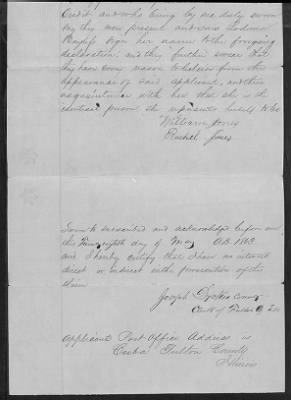 Credit and who being by me duly sworn
say they were present and saw
sign her name to the foregoing
declaration, and they further swear that
they have every reason to believe from the
appearance of said applicant, and their
acquaintance with her that she is the
identical person she represents herself to be
William Jones
Rachel Jones
Sworn to subscribed and acknowledged before me
the day of May A.D. 1863
and I hereby certify that I have no interest
direct or indirect in the prosecution of this
claim
Joseph
Clerk of
Applicant Post Office Address is
Cuba Fulton County
Illinois